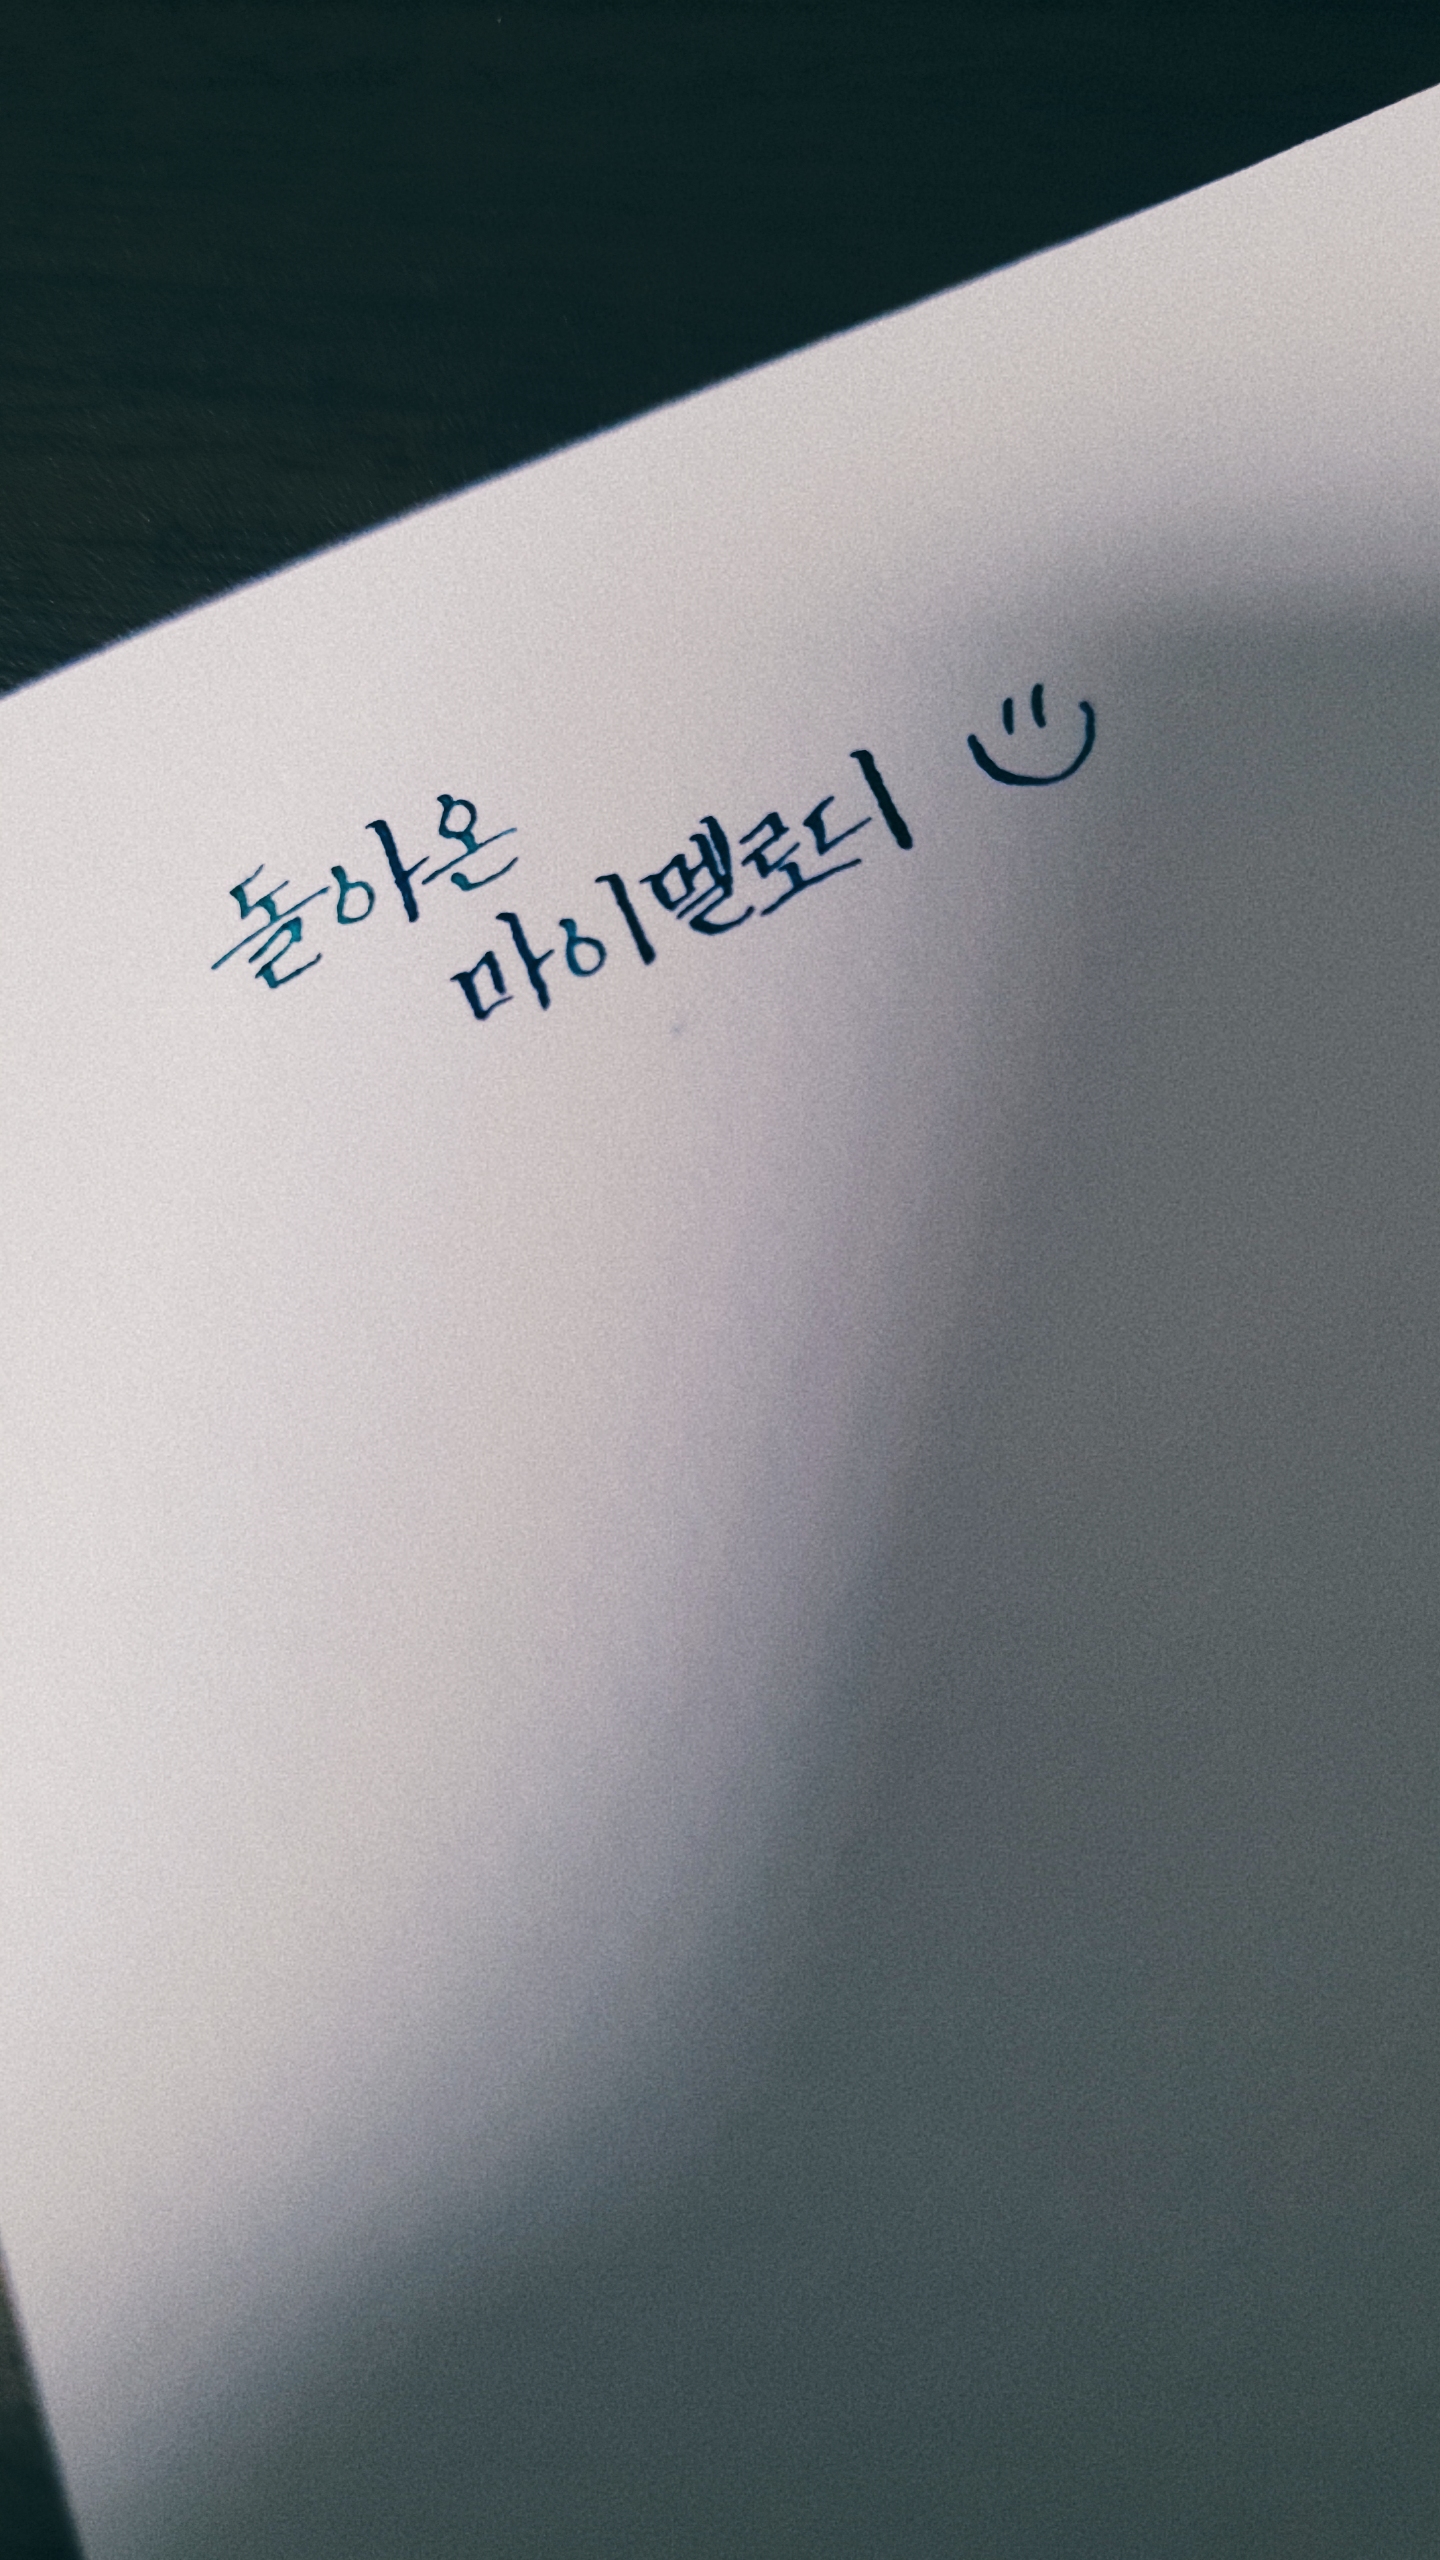 돌아온
마이멜로디